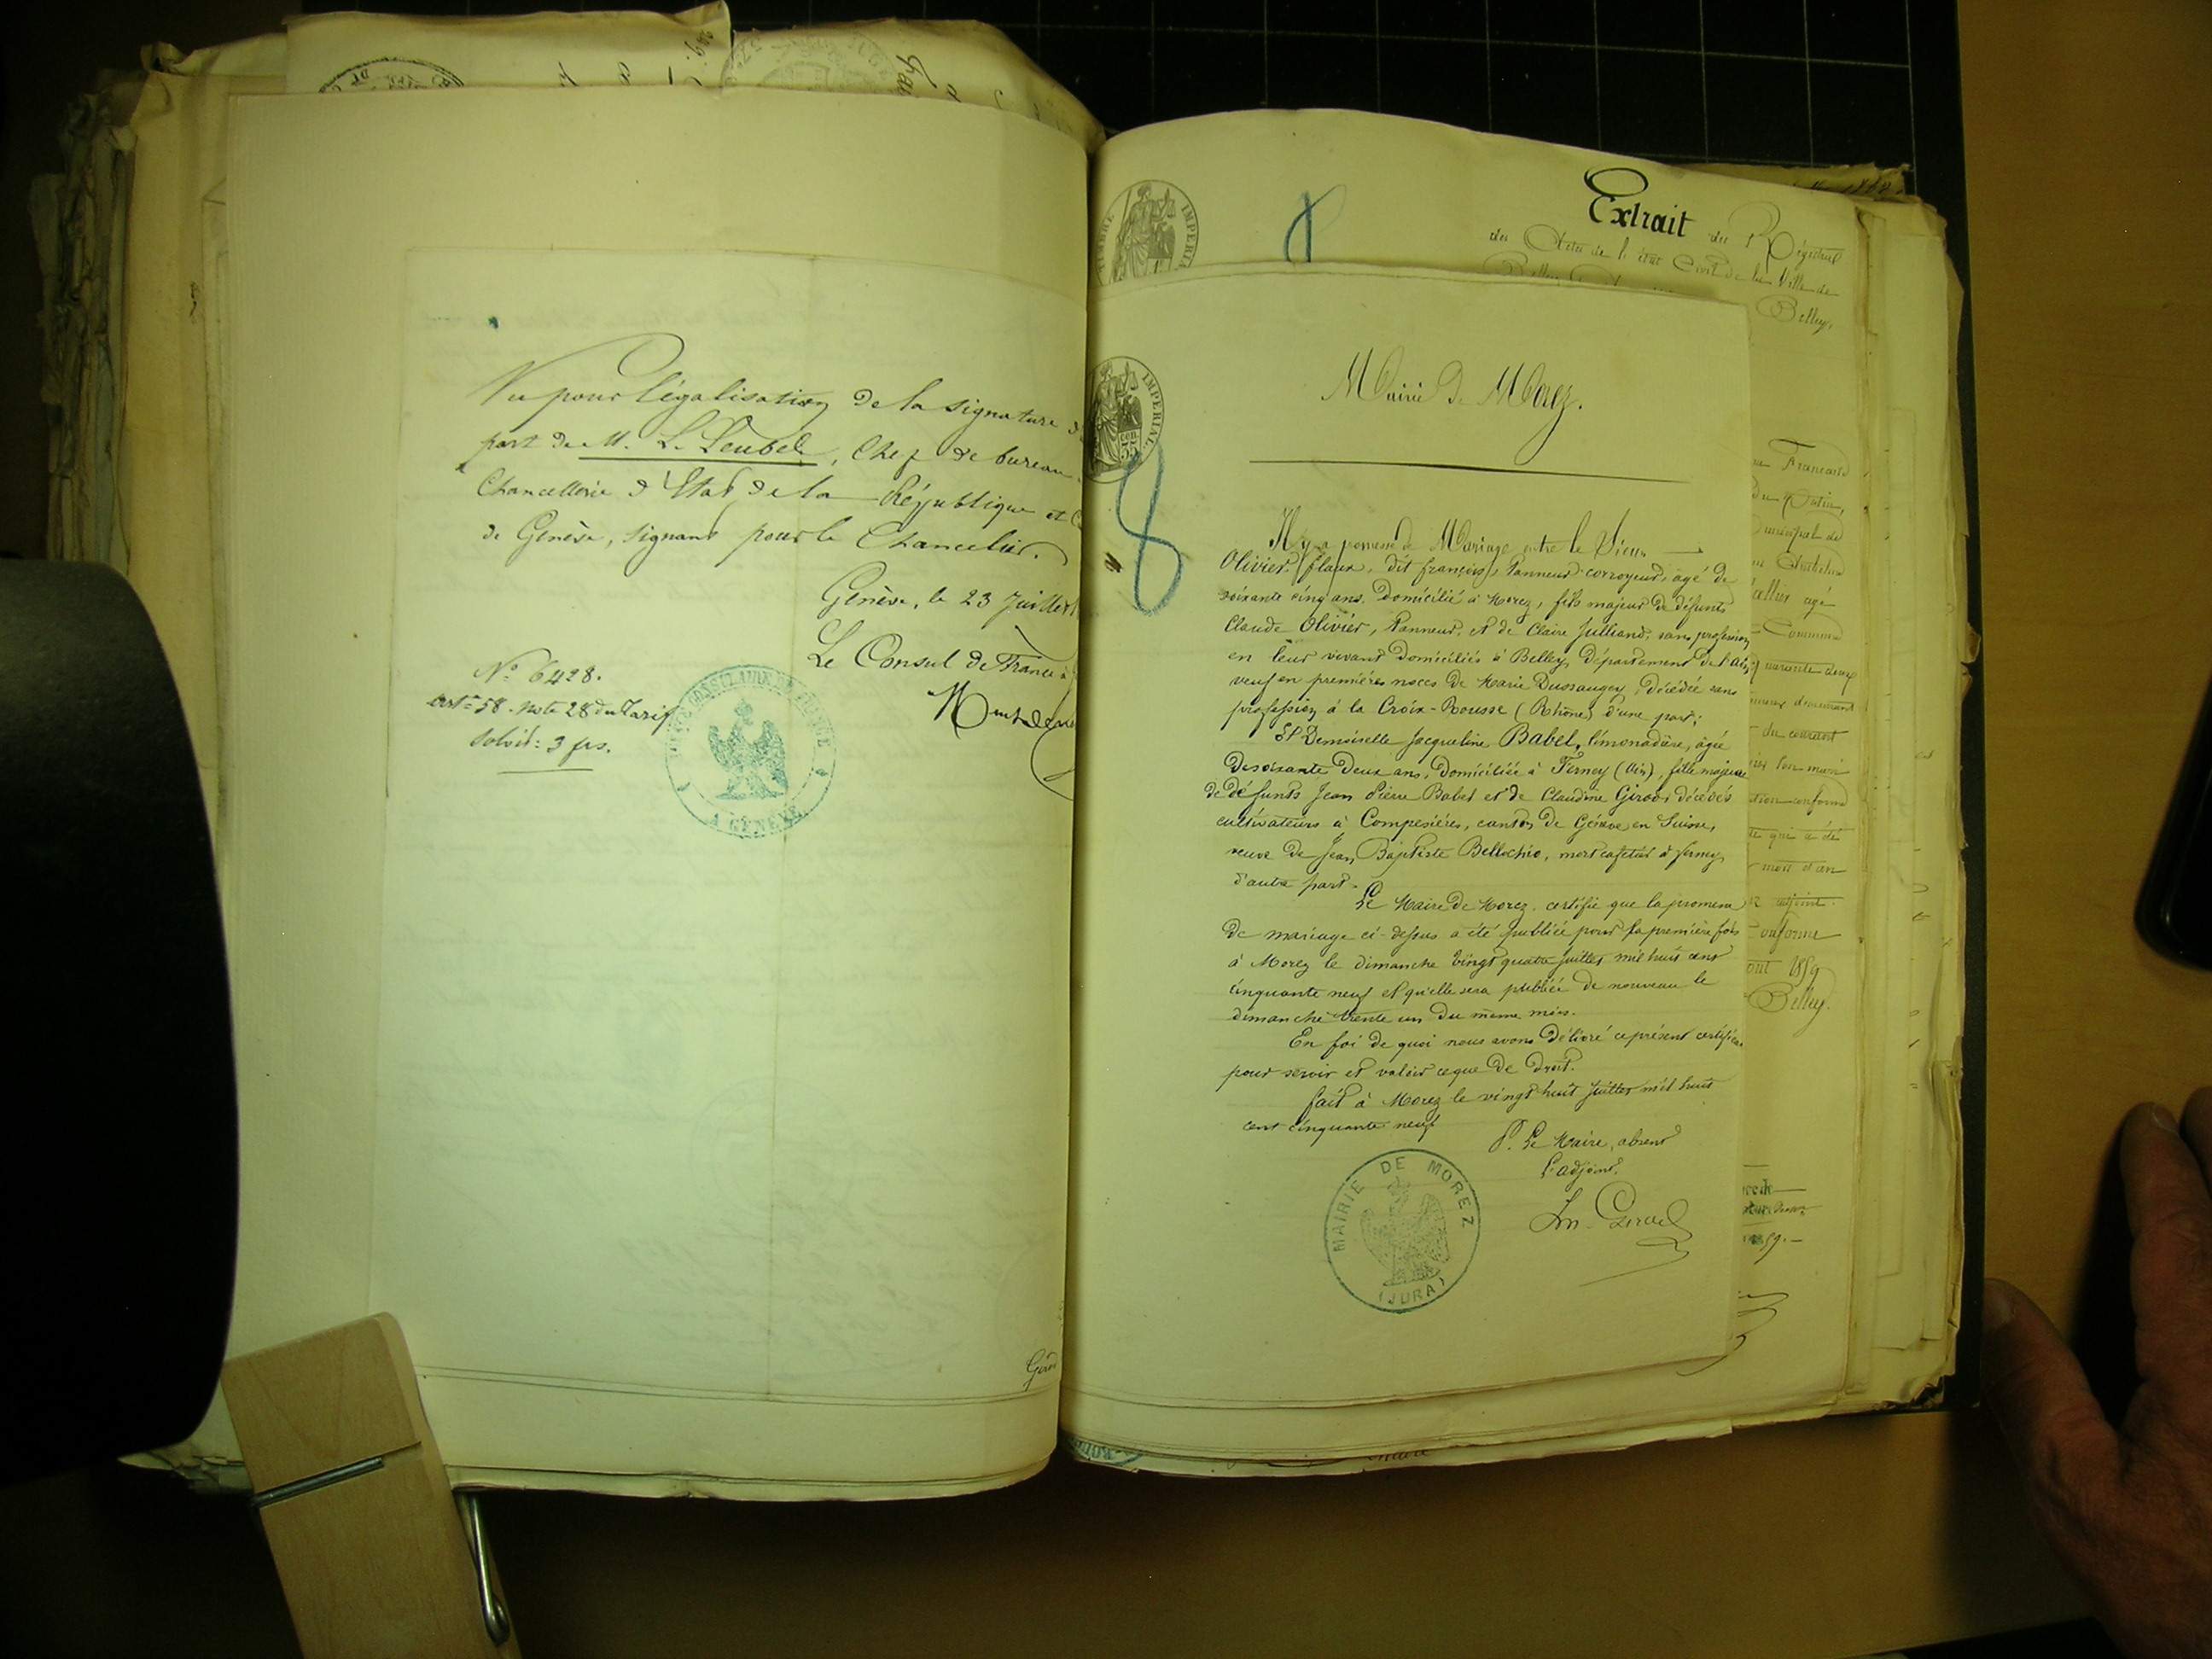 Vu pour légalisation de la signature d
part de M. L. Leubel, Chef de bureau
Chancellerie d'Etat de la République et C
de Genève, signant pour le Chancelier.
Genève, le 23 Juillet
Le Consul de France à
N.o 6428.
art.e 58. note 28 du Tarif
Solvit: 3 frs.
CONSULAT DE FRANCE
A GENÈVE
Extrait des Régistres
des Actes de l'état Civil de la Ville de
Belley.
TIMBRE IMPERIAL
IMPERIAL
35
8
Mairie de Morez.
Il y a promesse de Mariage entre le Sieur
Olivier (flaux, dit françois), Tanneur-corroyeur, agé de
soixante cinq ans. Domicilié à Morez, fils majeur de défunts
Claude Olivier, Tanneur, et de Claire Julliand, sans profession
en leur vivant Domiciliés à Belley, Département de l'Ain,
veuf en premières noces de Marie Dussaugey, Décédée sans
profession à la Croix-Rousse (Rhône) d'une part;
Et Demoiselle Jacqueline Babel, limonadière, âgée
De soixante Deux ans, Domiciliée à Ferney (Ain), fille majeure
de défunts Jean Pierre Babel et de Claudine Girod, décédés
cultivateurs à Compesières, canton de Génève en Suisse,
veuve de Jean Baptiste Bellochio, mort cafetier à ferney
d'autre part.
Le Maire de Morez certifie que la promesse
De mariage ci-dessus a été publiée pour la première fois
à Morez le dimanche vingt quatre juillet mil huit cent
cinquante neuf et qu'elle sera publiée de nouveau le
dimanche trente un du même mois.
En foi de quoi nous avons Délivré ce présent certificat
pour servir et valoir ce que De Droit.
fait à Morez le vingt huit juillet mil huit
cent cinquante neuf
P. Le Maire, absent
L'adjoint.
MAIRIE DE MOREZ
(JURA)